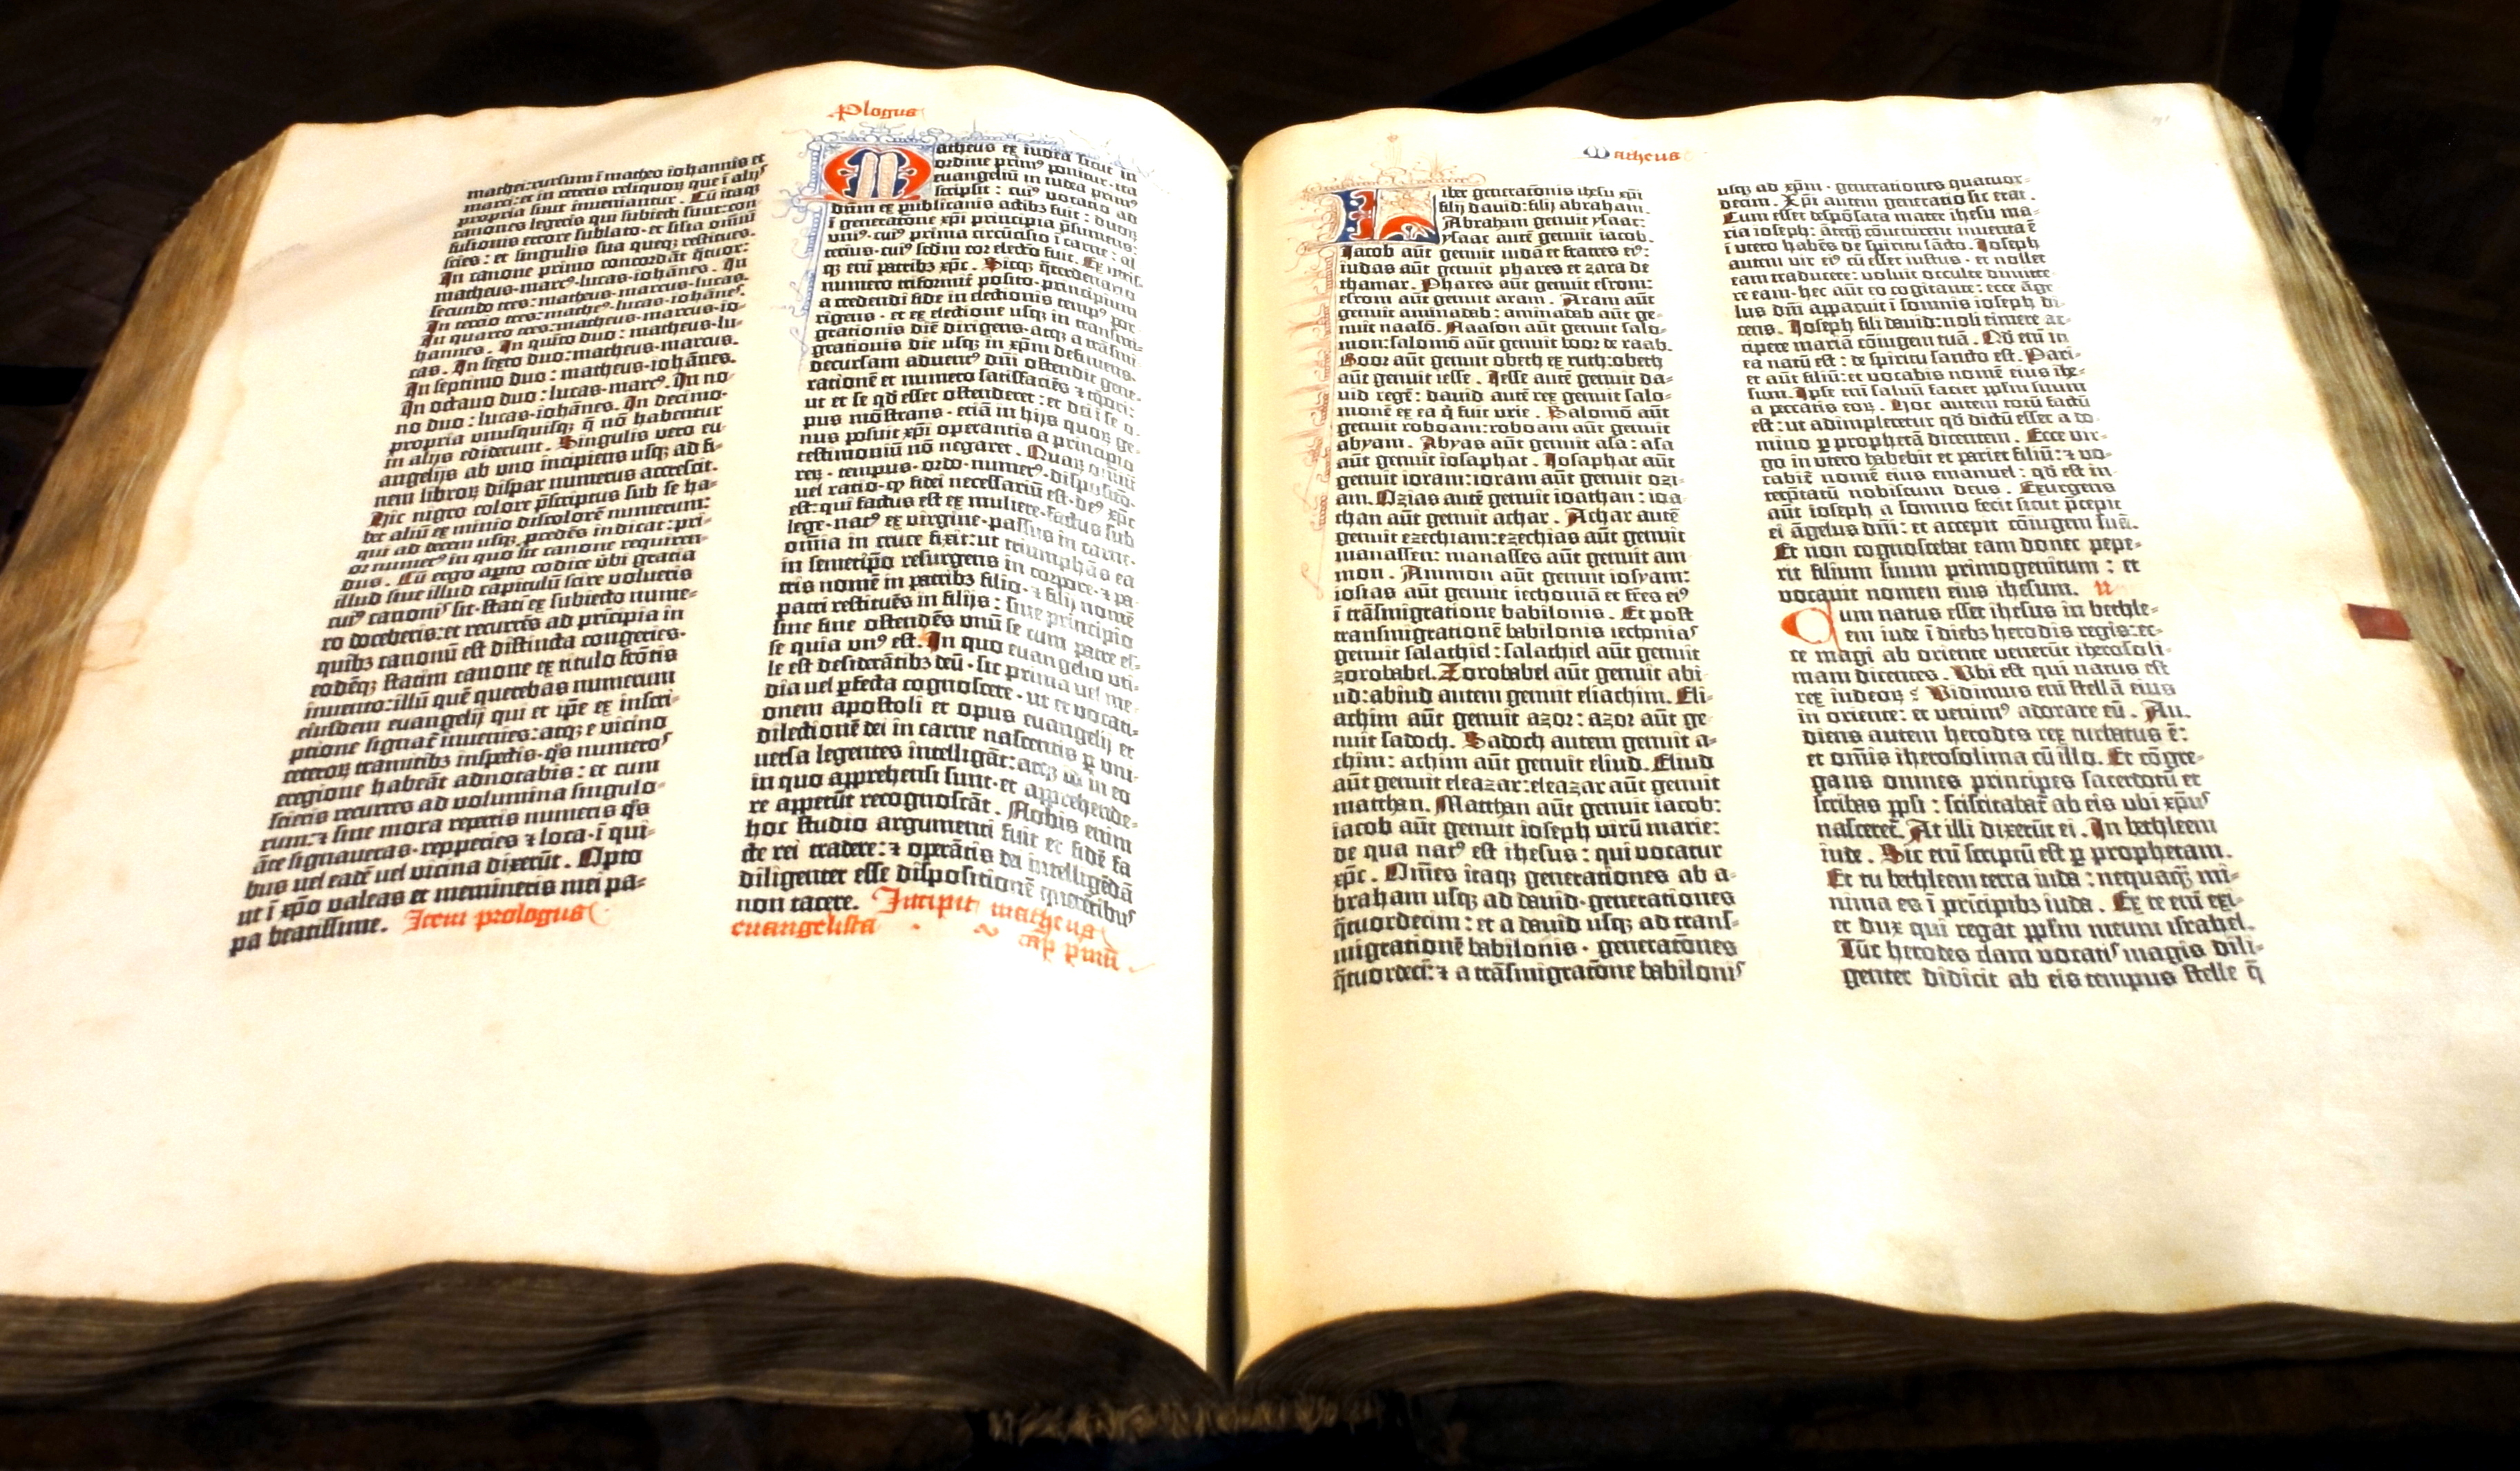 Plogus
mathei: rursum ī matheo iohannis et
marci: et in ceteris reliquoꝝ que ī alijs
propria sunt inueniantur. Cū itaqꝫ
canones legeris qui subiecti sunt: con-
fusionis errore sublato· et silia omniū
scies: et singulis sua queqꝫ restitues.
In canone primo concordāt q̄tuor:
matheus· marcꝰ· lucas· iohānes. In
secundo tres: matheus· marcus· lucas.
In tercio tres: matheꝰ· lucas· iohānes.
In quarto tres: matheus· marcus· io-
hannes. In quīto duo: matheus· lu-
cas. In sexto duo: matheus· marcus.
In septimo duo: matheus· iohānes.
In octauo duo: lucas· marcꝰ. In no-
no duo: lucas· iohānes. In decimo·
propria vnusquisqꝫ q̄ nō habentur
in alijs ediderunt. Singulis vero eu-
angelijs ab vno incipiens usqꝫ ad fi-
nem libroꝝ dispar numerus accrescit.
Hic nigro colore p̄scriptus sub se ha-
bet aliū ex minio discolorē numerum:
qui ad decem usqꝫ ꝓcedēs indicat: pri-
or numerꝰ in quo sit canone requiren-
dus. Cū ergo apto codice v̄bi gratia
illud siue illud capitulū scire volueris
cuiꝰ canonis sit· statī ex subiecto nume-
ro doceberis: et recurrēs ad pricipia in
quibꝫ canonū est distincta congeries·
eodēqꝫ statim canone ex titulo frōtis
inuento: illū quē querebas numerum
eiusdem euangelij qui et ip̄e ex inscri-
ptione signat̄ inuenies: atqꝫ e vicino
ceteroꝝ tramitibꝫ inspectis· q̄s numeros
eregione habeāt adnotabis: et cum
scieris recurres ad volumina singulo-
rum: ⁊ sine mora repertis numeris q̄s
āte signaueras· repperies ⁊ loca· ī qui-
bus uel eadē uel vicina dixerūt. Opto
ut ī xp̄o valeas et memineris mei pa-
pa beatissime. Item prologus
Matheus ex iudea sicut in
ordine primꝰ ponitur· ita
euangeliū in iudea primꝰ
scripsit: cuiꝰ vocatio ad
dūm ex publicanis actibꝫ fuit: duoꝝ
ī generatōne xp̄i principia p̄sumens:
vniꝰ· cuiꝰ prima circūcisio ī carne: al
terius· cuiꝰ scdm cor electō fuit. Ex vtris-
qꝫ eni patribꝫ xp̄c. Sicqꝫ q̄terdenario
numero triformit̄ posito· principium
a credendi fide in electionis tempꝰ por
rigens· et ex electione usqꝫ in transmi-
grationis diē dirigens· atqꝫ a trāsmi
grationis die usqꝫ in xp̄m definiens·
decursam aduentꝰ dn̄i ostendit gene-
rationē et numero satisfaciēs ⁊ tp̄ori:
ut et se qd̄ esset ostenderet: et dei ī se o-
pus mōstrans· etiā in hijs quoꝝ ge-
nus posuit xp̄i operantis a principio
testimoniū nō negaret. Quaꝝ omniū
reꝝ· tempus· ordo· numerꝰ· dispositō·
uel ratio· qꝫ fidei necessariū est· deꝰ xp̄c
est: qui factus est ex muliere· factus sub
lege· natꝰ ex virgine· passus in carne·
omnia in cruce fixit: ut triumphās ea
in semetip̄o resurgens in corpore· ⁊ pa-
tris nomē in patribꝫ filio· ⁊ filij nomē
patri restituēs in filijs: sine principio
sine fine ostendēs vnū se cum patre es-
se quia vnꝰ est. In quo euangelio uti-
le est desiderātibꝫ deū· sic prima uel me-
dia uel perfecta cognoscere· ut et vocati-
onem apostoli et opus euangelij et
dilectionē dei in carne nascentis p̲ uni-
uersa legentes intelligāt: atqꝫ id in eo
in quo apprehensi sunt· et apprehende-
re appetūt recognoscāt. Nobis enim
hoc studio argumenti fuit et fidē fa
cte rei tradere: ⁊ operātis dei intelligēdā
diligenter esse dispositionē querentibus
non tacere. Incipit matheus
euangelista cap pmū
Matheus
Liber generatōnis ihesu xp̄i
filij dauid: filij abraham.
Abraham genuit ysaac:
ysaac autē genuit iacob.
Iacob aūt genuit iudā et fratres eiꝰ:
iudas aūt genuit phares et zara de
thamar. Phares aūt genuit esrom:
esrom aūt genuit aram. Aram aūt
genuit aminadab: aminadab aūt ge-
nuit naasō. Naason aūt genuit salo-
mon: salomō aūt genuit booz de raab.
Booz aūt genuit obeth ex ruth: obeth
aūt genuit iesse. Iesse autē genuit da-
uid regē: dauid autē rex genuit salo-
monē ex ea q̄ fuit vrie. Salomō aūt
genuit roboam: roboam aūt genuit
abyam. Abyas aūt genuit asa: asa
aūt genuit iosaphat. Iosaphat aūt
genuit ioram: ioram aūt genuit ozi-
am. Ozias autē genuit ioathan: ioa-
than aūt genuit achar. Achar autē
genuit ezechiam: ezechias aūt genuit
manassen: manasses aūt genuit am
mon. Ammon aūt genuit iosyam:
iosias aūt genuit iechoniā et fr̄es eiꝰ
ī trāsmigratione babilonis. Et post
transmigrationē babilonis iechonias
genuit salachiel: salachiel aūt genuit
zorobabel. Zorobabel aūt genuit abi
ud: abiud autem genuit eliachim. Eli-
achim aūt genuit azor: azor aūt ge-
nuit sadoch. Sadoch autem genuit a-
chim: achim aūt genuit eliud. Eliud
aūt genuit eleazar: eleazar aūt genuit
matthan. Matthan aūt genuit iacob:
iacob aūt genuit ioseph virū marie:
de qua natꝰ est ihesus: qui vocatur
xp̄c. Om̄es itaqꝫ generationes ab a-
braham usqꝫ ad dauid· generationes
q̄tuordecim: et a dauid usqꝫ ad trans-
migrationē babilonis· generatōnes
q̄tuordeci: ⁊ a trāsmigratōne babilonis
usqꝫ ad xp̄m· generationes quatuor-
decim. Xp̄i autem generatio sic erat.
Cum esset despōsata mater ihesu ma-
ria ioseph: ānteqꝫ cōuenirent inuenta ē
ī utero habēs de spiritu sācto. Ioseph
autem vir eiꝰ cū esset iustus· et nollet
eam traducere: voluit occulte dimitte-
re eam· hec aūt eo cogitante: ecce āge
lus dn̄i apparuit ī somnis ioseph di-
cens. Ioseph fili dauid: noli timere ac-
cipere mariā cōiugem tuā. Qd̄ eni in
ea natū est: de spiritu sancto est. Pari-
et aūt filiū: et vocabis nomē eius ihe-
sum. Ipse eni saluū faciet pp̄lm suum
a peccatis eoꝝ. Hoc autem totū factū
est: ut adimpleretur qd̄ dictū esset a do-
mino p̲ prophetā dicentem. Ecce vir-
go in vtero habebit et pariet filiū: ⁊ vo-
cabit̄ nomē eius emanuel: qd̄ est in-
terp̄tatū nobiscum deus. Exurgens
aūt ioseph a somno fecit sicut p̄cepit
ei āgelus dn̄i: et accepit cōiugem suā.
Et non cognoscebat eam donec pepe-
rit filium suum primogenitum: et
vocauit nomen eius ihesum. ii
Cum natus esset ihesus in bethle-
em iude ī diebꝫ herodis regis: ec-
ce magi ab oriente venerūt iherosoli-
mam dicentes. Vbi est qui natus est
rex iudeoꝝ? Vidimus eni stellā eius
in oriente: et venimꝰ adorare eū. Au-
diens autem herodes rex turbatus ē:
et om̄is iherosolima cū illo. Et cōgre-
gans omnes principes sacerdotū et
scribas pp̄li: sciscitabat̄ ab eis vbi xp̄us
nasceret̄. At illi dixerūt ei. In bethleem
iude. Sic eni scriptū est p̲ prophetam.
Et tu bethleem terra iuda: nequaq̄ꝫ mi-
nima es ī pricipibꝫ iuda. Ex te eni exi-
et dux qui regat pp̄lm meum israhel.
Tūc herodes clam vocatis magis dili-
genter didicit ab eis tempus stelle q̄